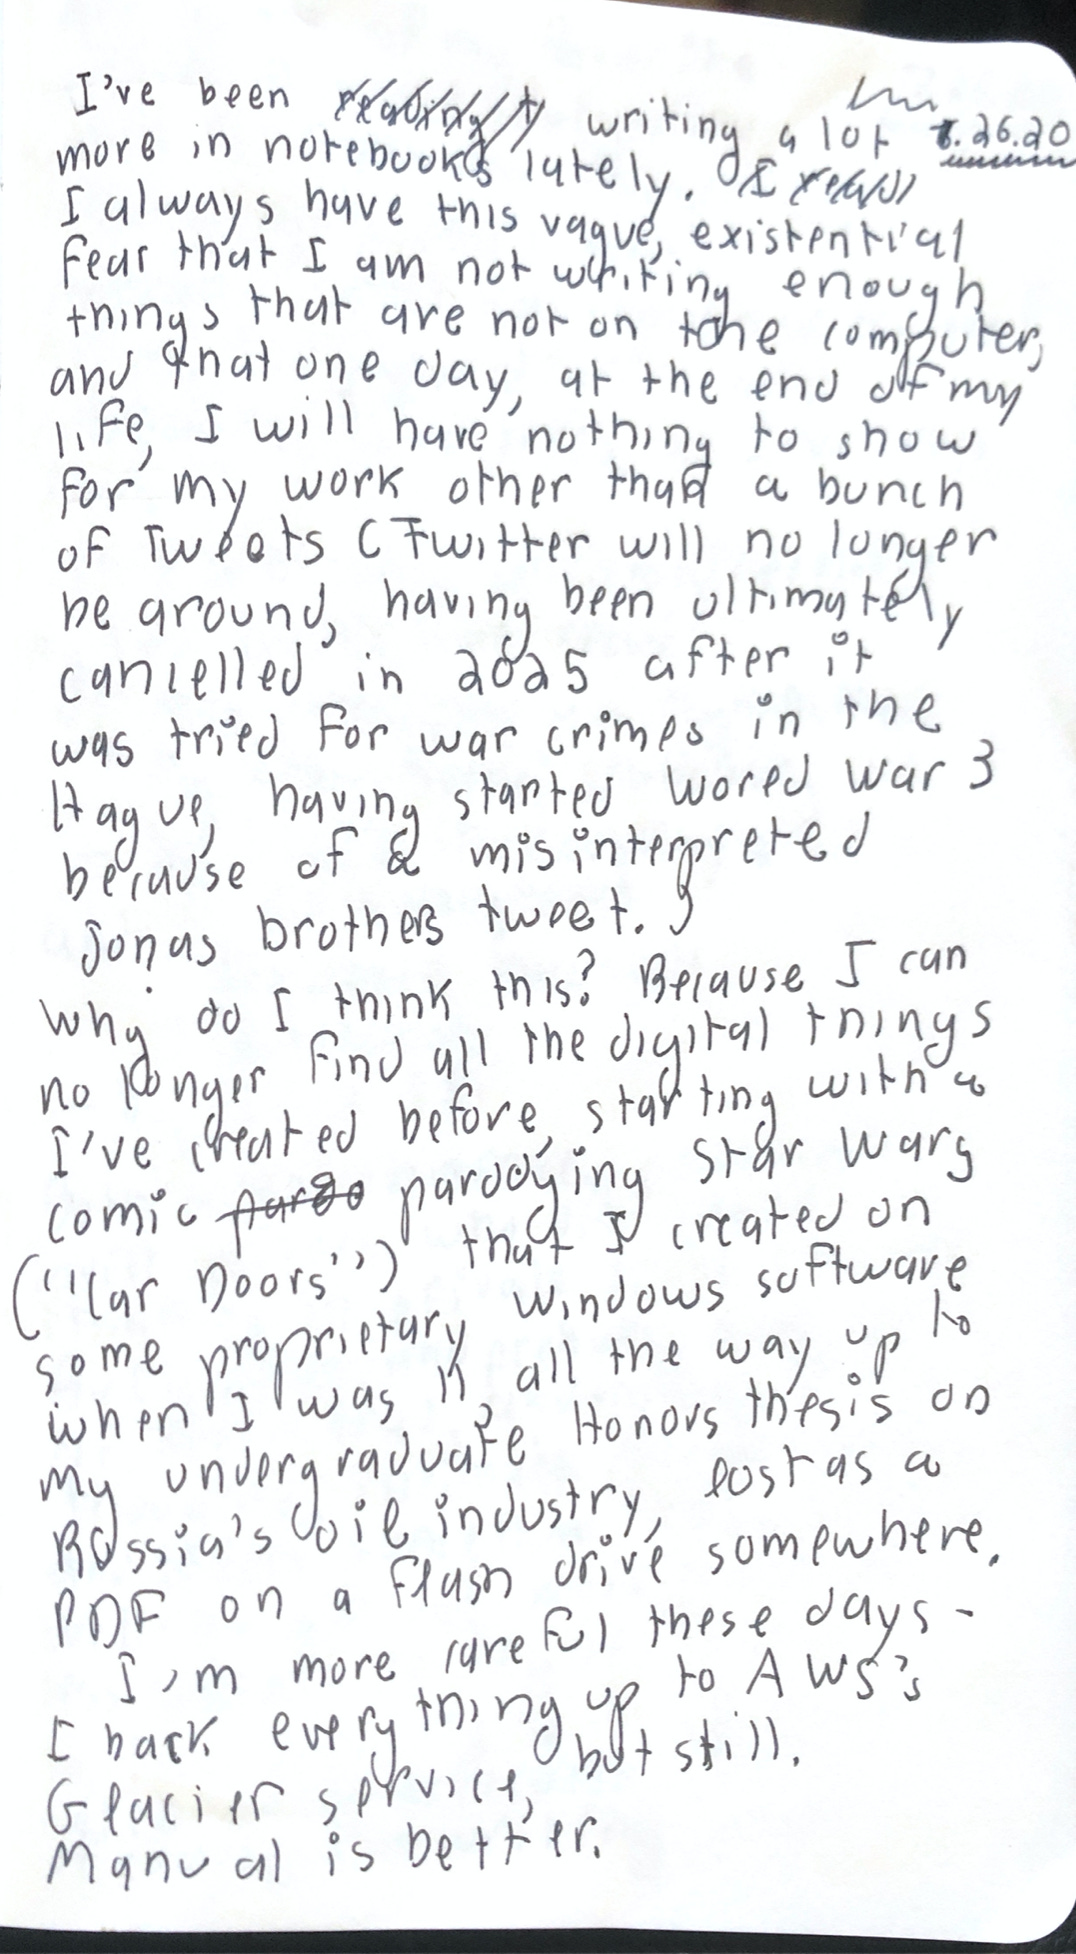 I've been writing a lot
.26.20
more in notebooks lately.
I always have this vague, existential
fear that I am not writing enough
things that are not on the computer,
and that one day, at the end of my
life, I will have nothing to show
for my work other than a bunch
of Tweets (Twitter will no longer
be around, having been ultimately
cancelled in 2025 after it
was tried for war crimes in the
Hague, having started world war 3
because of a misinterpreted
Jonas brothers tweet.)
Why do I think this? Because I can
no longer find all the digital things
I've created before, starting with a
comic parodying Star Wars
("Car Doors") that I created on
some proprietary Windows software
when I was 11 all the way up to
my undergraduate Honors thesis on
Russia's oil industry, lost as a
PDF on a flash drive somewhere.
I'm more careful these days -
I back everything up to AWS's
Glacier service, but still.
Manual is better.